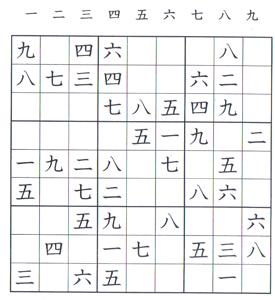 一 二 三 四 五 六 七 八 九
九 四 六 八
八 七 三 四 六 二
七 八 五 四 九
五 一 九 二
一 九 二 八 七 五
五 七 二 八 六
五 九 八 六
四 一 七 五 三 八
三 六 五 一